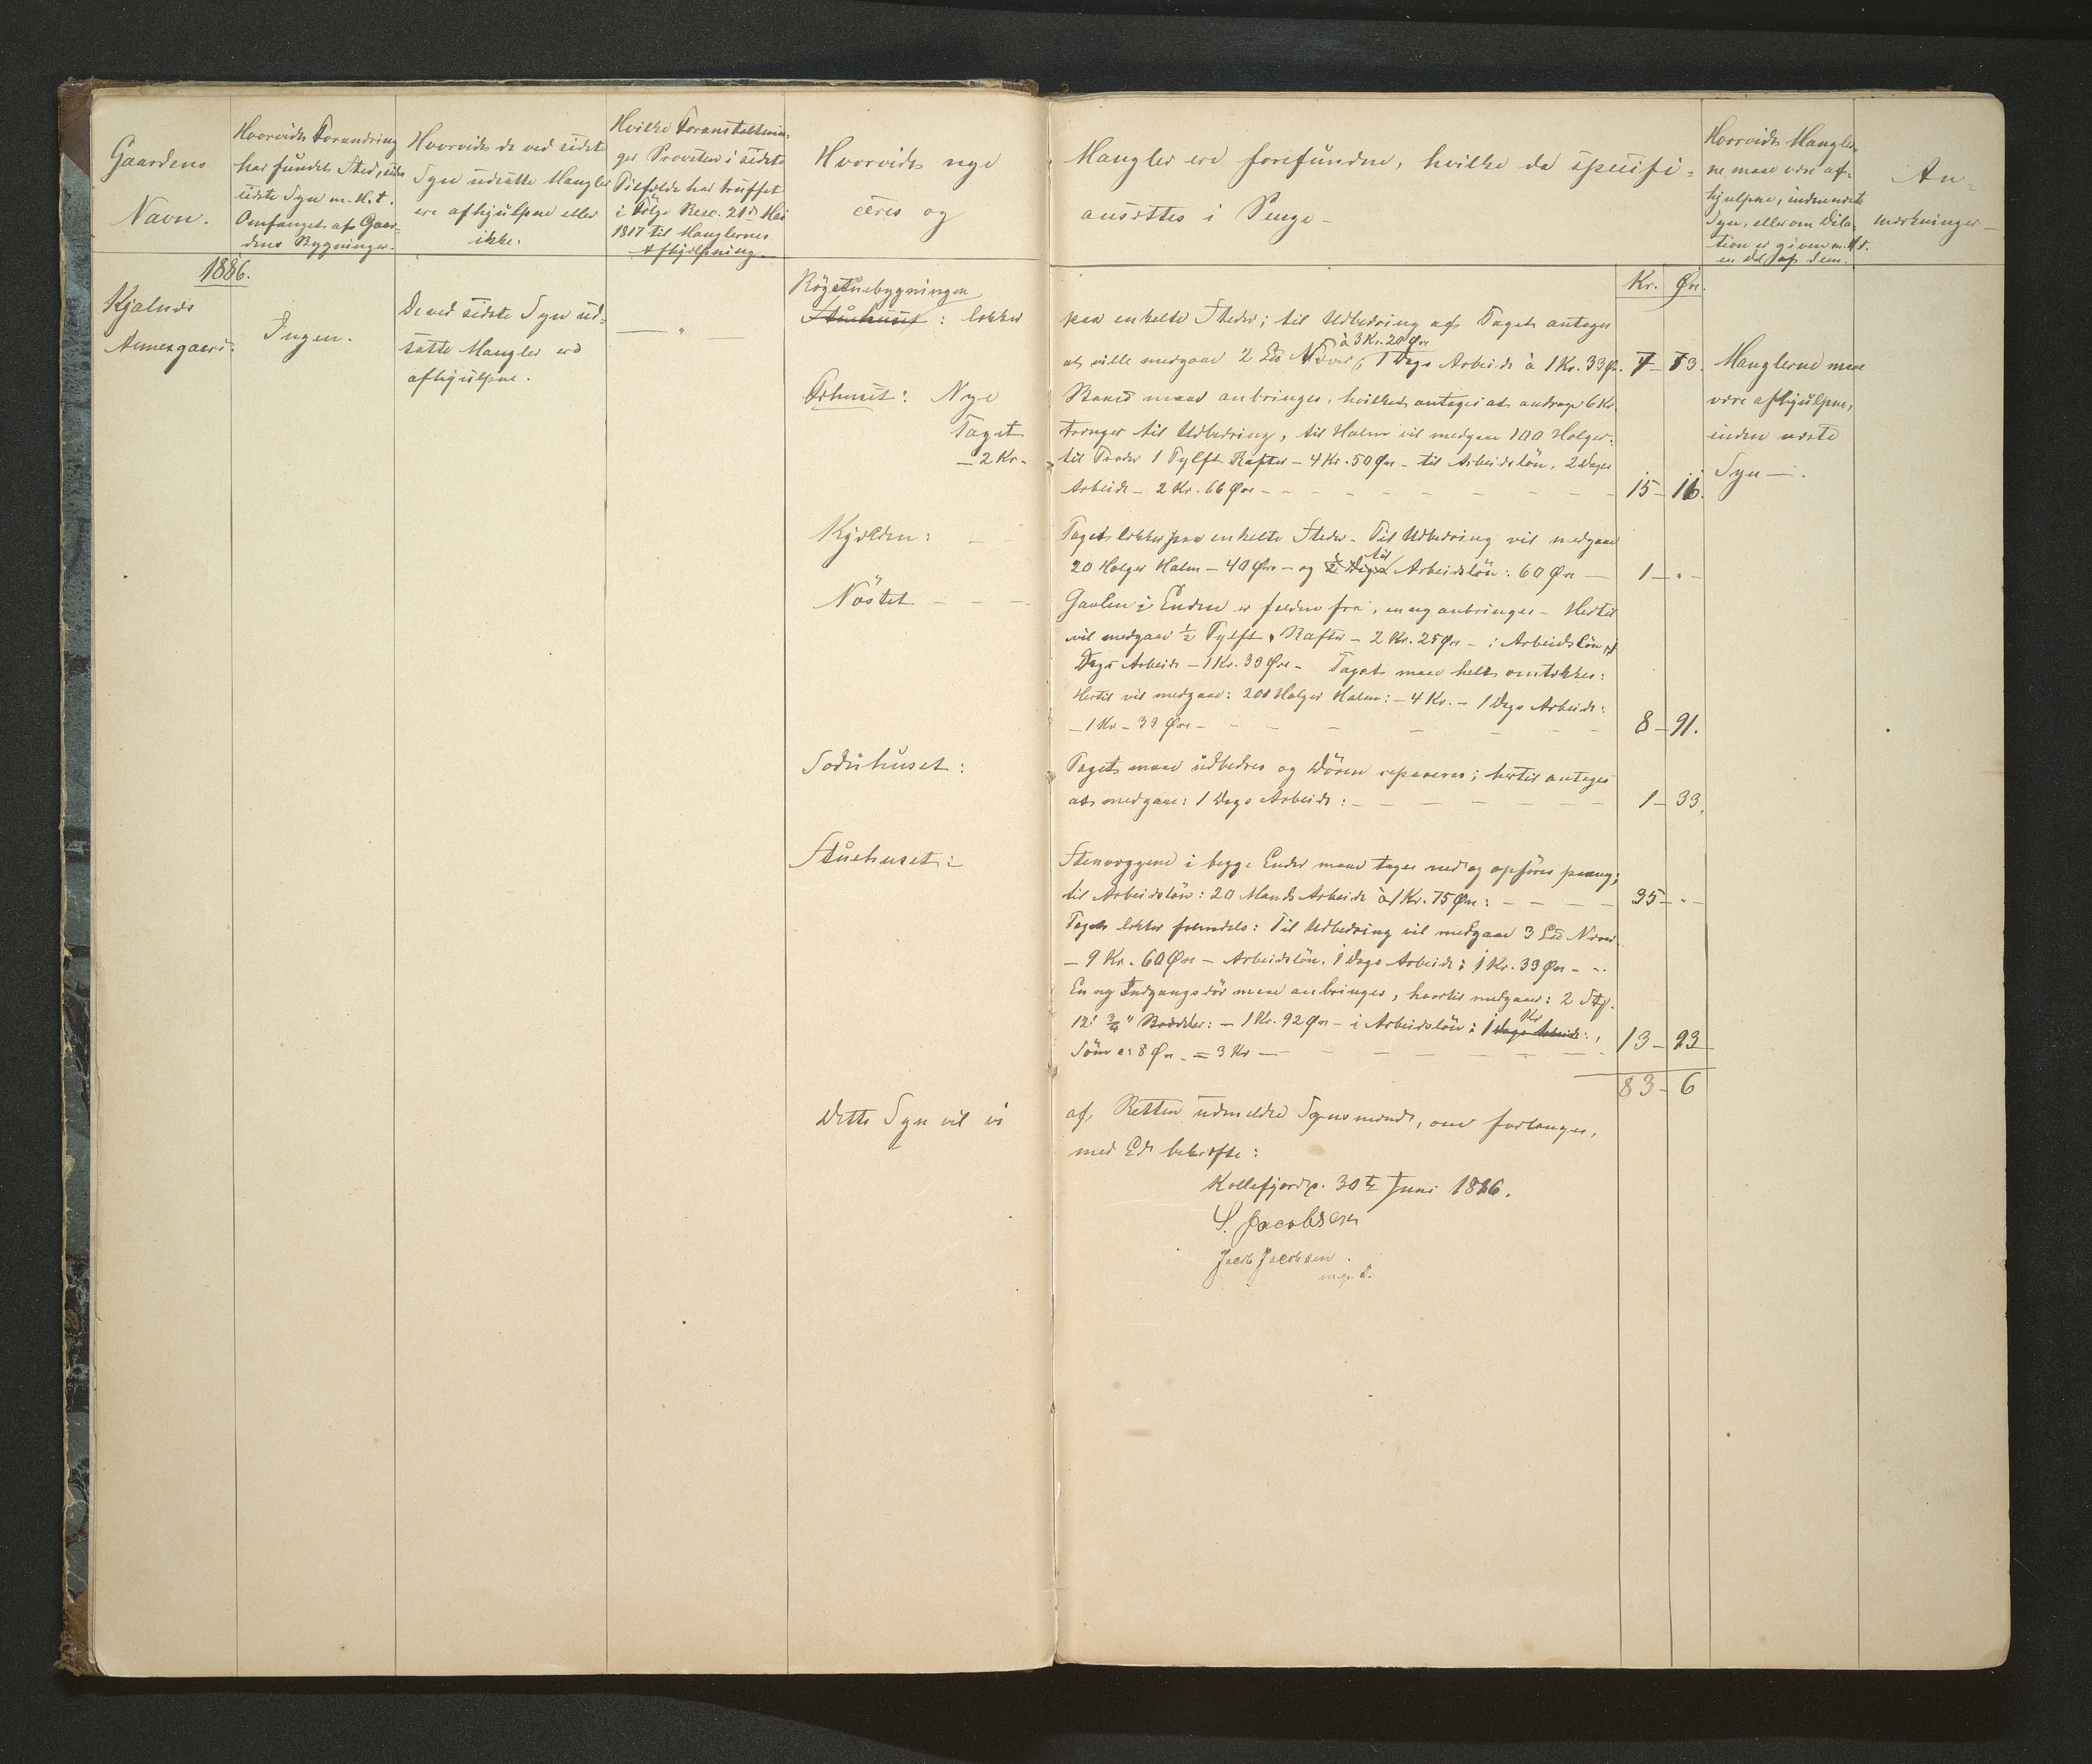 Gaardens
Navn.
Hvorvidt Forandring
har fundet Sted, siden
sidste Syn m. H. t.
Omfanget af Gaar-
dens Bygninger.
Hvorvidt de ved sidste
Syn udsatte Mangler
ere afhjulpne eller
ikke.
Hvilke Foranstaltnin-
ger Provsten i sidste
Tilfælde har truffet
i Følge Resc. 21de Mai
1817 til Manglernes
Afhjælpning.
Hvorvidt nye
ceres og
Mangler ere forefundne, hvilke da specifi-
ansættes i Penge-
Hvorvidt Mangler-
ne maae være af-
hjulpne, inden næste
Syn, eller om Dila-
tion er given m. H. t.
en Del af dem.
An-
mærkninger-
1886.
Kr. Øre.
Kjalnæs
Annexgaard.
Ingen.
De ved sidste Syn ud-
satte Mangler ere
afhjulpne.
— " —
Røgstuebygningen
Stuehuset: lækker
paa enkelte Steder; til Udbedring af Taget antages
à 3 Kr. 20 Øre
at ville medgaae 2 Lod Næver, 1 Dags Arbeide à 1 Kr. 33 Ør. 7 - 73.
Manglerne maae
være afhjulpne,
inden næste
Syn -.
Nye
Baase maae anbringes, hvilket antages at andrage 6 Kr.
Taget
trænger til Udbedring, til Halm vil medgaae 100 Holger:
- 2 Kr.
til Trøder 1 Tylft Rafter - 4 Kr. 50 Øre - til Arbeidsløn, 2 Dages
Arbeide - 2 Kr. 66 Øre - 15 - 16.
Kjælden:
Taget lækker paa enkelte Steder. Til Udbedring vil medgaae
til
20 Holger Halm - 40 Øre - og ½ Dags Arbeidsløn: 60 Øre - 1 - " -
Nöstet
Gavlen i Enden er falden fra, en ny anbringes - Hertil
vil medgaae ½ Tylft Rafter - 2 Kr. 25 Øre - i Arbeidsløn 1
Dags Arbeide - 1 Kr. 33 Øre - Taget maae helt omtækkes:
Hertil vil medgaae: 200 Holger Halm: - 4 Kr. - 1 Dags Arbeide:
- 1 Kr - 33 Øre - 8 - 91.
Sodnhuset:
Taget maae udbedres og Døren repareres; hertil antages
at medgaae: 1 Dags Arbeide: - 1 - 33.
Stuehuset:
Stenvæggene i begge Ender maae tages ned og opføres paany;
til Arbeidsløn: 20 Mands Arbeide à 1 Kr. 75 Øre: - 35 - " -
Taget lækker: Til Udbedring vil medgaae 3 Lod Næver
- 9 Kr. 60 Øre - Arbeidsløn, 1 Dags Arbeide: 1 Kr. 33 Øre - -.
En ny Indgangsdør maae anbringes, hvortil medgaaer: 2 Stk.
Kr
12' ¾" Brædder: - 1 Kr. 92 Øre - i Arbeidsløn: 1 Dags Arbeide:,
Søm: 8 Øre - = 3 Kr - 13 - 93
83 - 6
Dette Syn vil vi
af Retten udmeldte Synsmænd, om forlanges,
med Ed bekræfte:
Kollefjord p. 30te Juni 1886.
S. Jacobsen
Jacob Jacobsen
m. p. P.